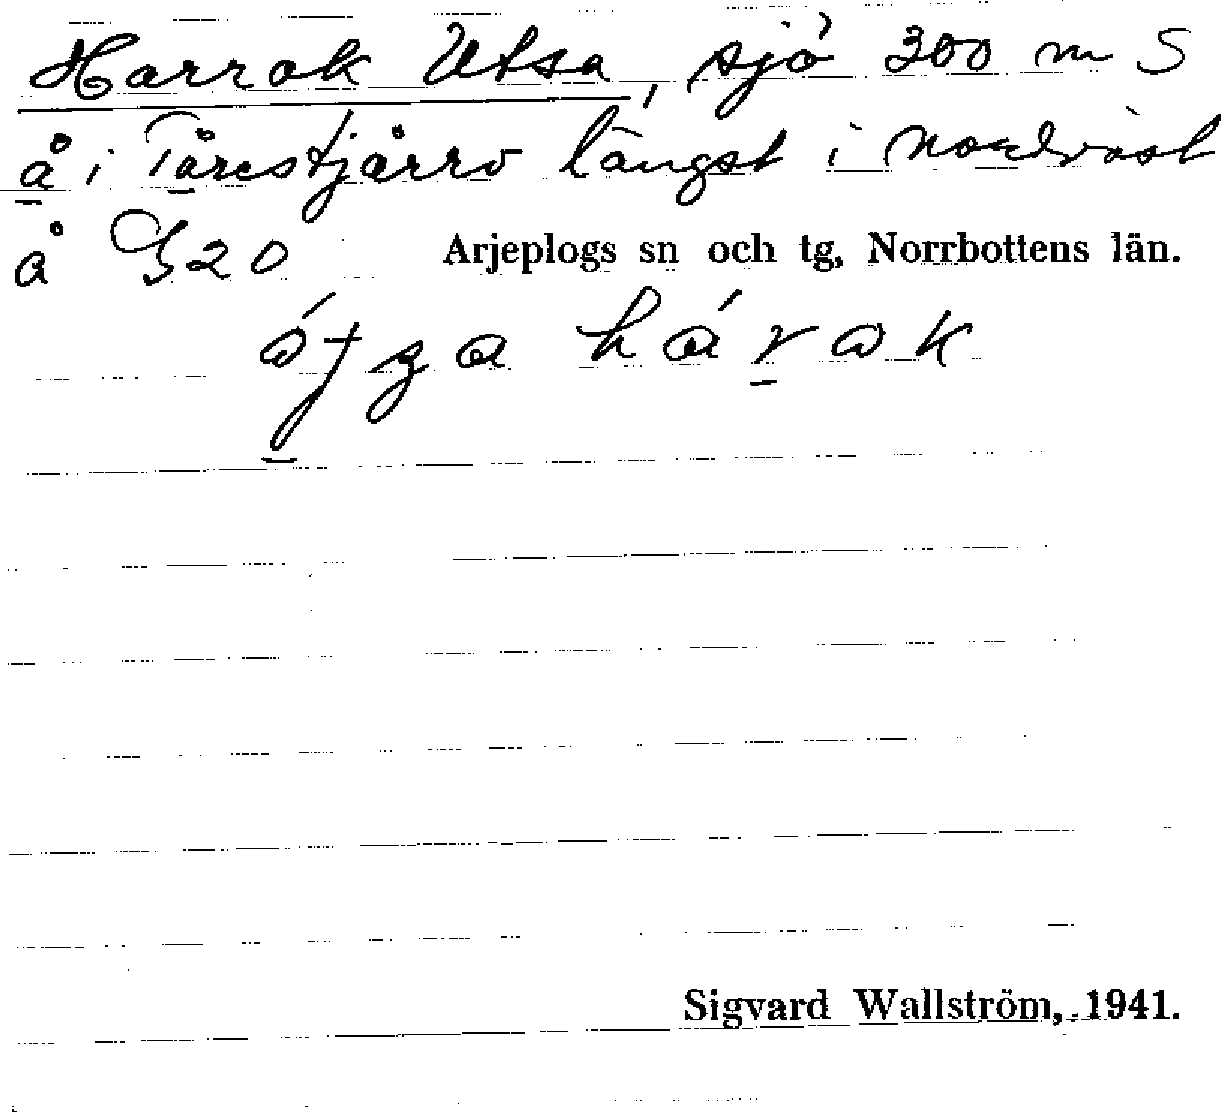 Harrok Utsa, sjö 300 m S
å i Tårestjårro längst i nordväst
å G20 Arjeplogs sn och tg, Norrbottens län.
hárak
Sigvard Wallström, 1941.